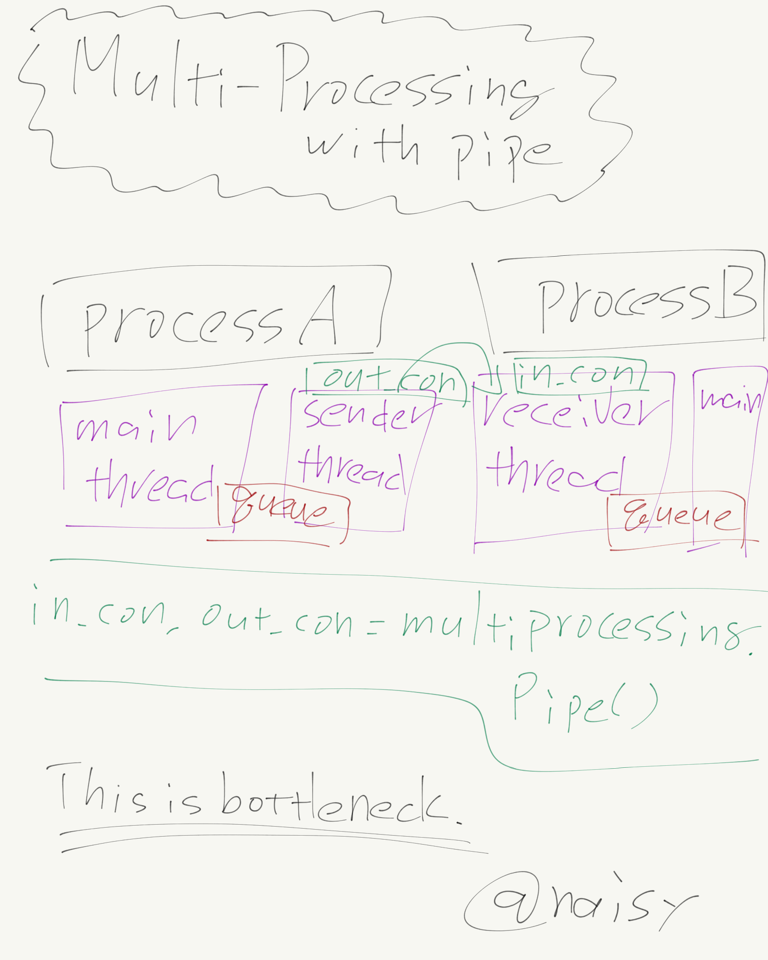 Multi-Processing
with pipe
processA
processB
out_con
in_con
main
thread
sender
thread
queue
receiver
thread
main
queue
in_con, out_con = multiprocessing.
Pipe()
This is bottleneck.
@naisy